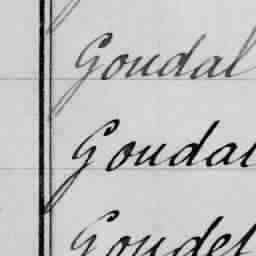 Goudal
Goudal
Goudet